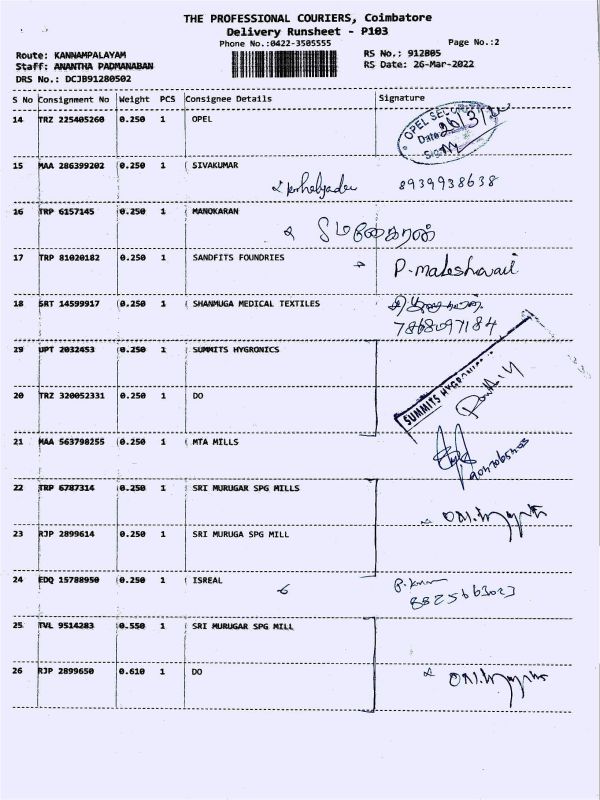 THE PROFESSIONAL COURIERS, Coimbatore
Delivery Runsheet - P103
Phone No.:0422-3505555
Page No.:2
Route: KANNAMPALAYAM
RS No.: 912805
Staff: ANANTHA PADMANABAN
RS Date: 26-Mar-2022
DRS No.: DCJB91280502
S No Consignment No Weight PCS Consignee Details Signature
14 TRZ 225405260 0.250 1 OPEL
OPEL SECURITY
Date
Sign
15 MAA 286399202 0.250 1 SIVAKUMAR
8939938638
16 TRP 6157145 0.250 1 MANOKARAN
17 TRP 81020182 0.250 1 SANDFITS FOUNDRIES
P. maheshwari
18 SRT 14599917 0.250 1 SHANMUGA MEDICAL TEXTILES
7868097184
29 UPT 2032453 0.250 1 SUMMITS HYGRONICS
SUMMITS HYGRONICS
20 TRZ 320052331 0.250 1 DO
21 MAA 563798255 0.250 1 MTA MILLS
22 TRP 6787314 0.250 1 SRI MURUGAR SPG MILLS
23 RJP 2899614 0.250 1 SRI MURUGA SPG MILL
24 EDQ 15788950 0.250 1 ISREAL
8825663023
25 TVL 9514283 0.550 1 SRI MURUGAR SPG MILL
26 RJP 2899650 0.610 1 DO